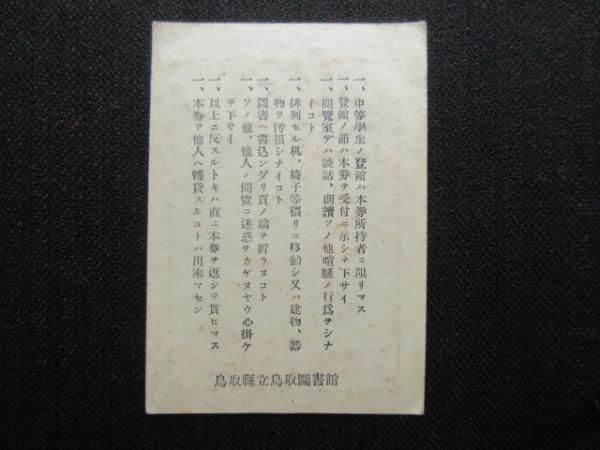 一、中等學生ノ登館ハ本券所持者ニ限リマス
一、登館ノ節ハ本券ヲ受付ニ示シテ下サイ
一、閲覽室デハ談話、朗讀ソノ他喧騷ノ行爲ヲシナ
イコト
一、排列セル机、椅子等猥リニ移動シ又ハ建物、器
物ヲ汚損シナイコト
一、圖書ヘ書込ンダリ頁ノ端ヲ折ラヌコト
一、ソノ他、他人ノ閲覽ニ迷惑ヲカケヌヤウ心掛ケ
テ下サイ
一、以上ニ反スルトキハ直ニ本券ヲ返シテ貰ヒマス
一、本券ヲ他人ヘ轉貸スルコトハ出來マセン
鳥取縣立鳥取圖書館